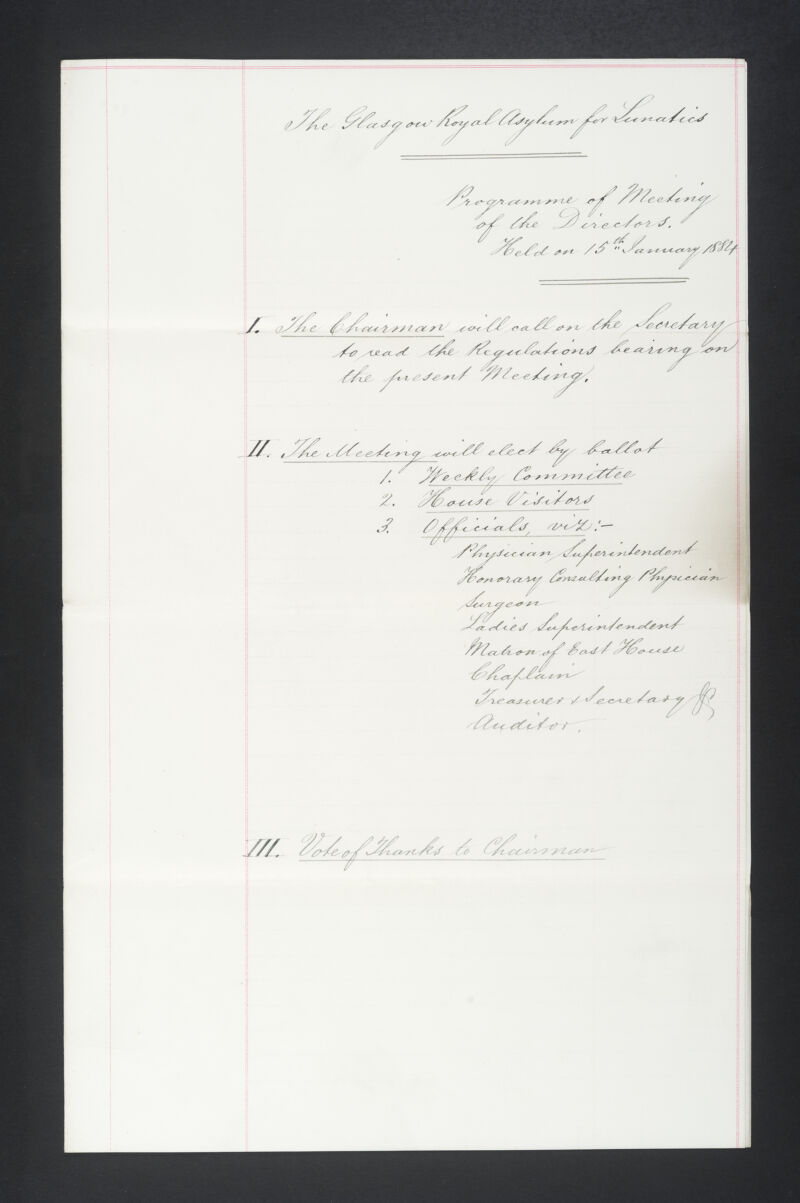 The Glasgow Royal Asylum for Lunatics
Programme of Meeting
of the Directors.
Held on 15th January 1884
I. The Chairman will call on the Secretary
to read the Regulations bearing on
the present Meeting.
II. The Meeting will elect by ballot
1. Weekly Committee
2. House Visitors
3. Officials, viz:-
Physician Superintendent
Honorary Consulting Physician
Surgeon
Ladies Superintendent
Matron of East House
Chaplain
Treasurer & Secretary
Auditor.
III. Vote of Thanks to Chairman